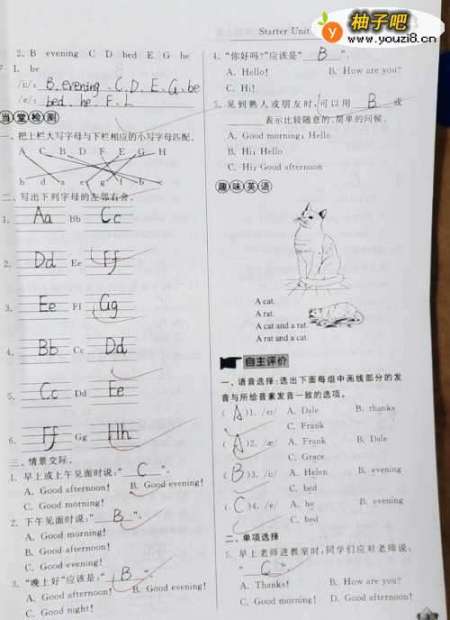 柚子吧
www.youzi8.cn
Starter Unit
2. B evening C D bed E G he
1. be
/iː/: B, evening, C, D, E, G, be
/e/: bed, he, F, L
当堂检测
一、把上栏大写字母与下栏相应的小写字母匹配。
A C B D F E G H
b d a e g f b c
二、写出下列字母的左邻右舍。
1. Aa Bb Cc
2. Dd Ee Ff
3. Ee Ff Gg
4. Bb Cc Dd
5. Cc Dd Ee
6. Ff Gg Hh
三、情景交际。
1. 早上或上午见面时说:“ C ”.
A. Good afternoon! B. Good evening!
C. Good morning!
2. 下午见面时说:“ B ”.
A. Good morning!
B. Good afternoon!
C. Good evening!
3. “晚上好”应该是:“ B ”
A. Good afternoon! B. Good evening!
C. Good night!
4. “你好吗?”应该是“ B ”.
A. Hello! B. How are you?
C. Hi!
5. 见到熟人或朋友时,可以用 B 或
表示比较随意的、简单的问候。
A. Good morning; Hello
B. Hi; Hello
C. Hi; Good afternoon
趣味英语
A cat.
A rat.
A cat and a rat.
A rat and a cat.
自主评价
一、语音选择:选出下面每组中画线部分的发
音与所给音素发音一致的选项。
( A )1. /eɪ/ A. Dale B. thanks
C. Frank
( A )2. /æ/ A. Frank B. Dale
C. Grace
( B )3. /iː/ A. Helen B. evening
C. bed
( C )4. /e/ A. he B. evening
C. bed
二、单项选择
5. 早上老师进教室时,同学们应对老师说:
“ C ”
A. Thanks! B. How are you?
C. Good morning! D. Good afternoon!